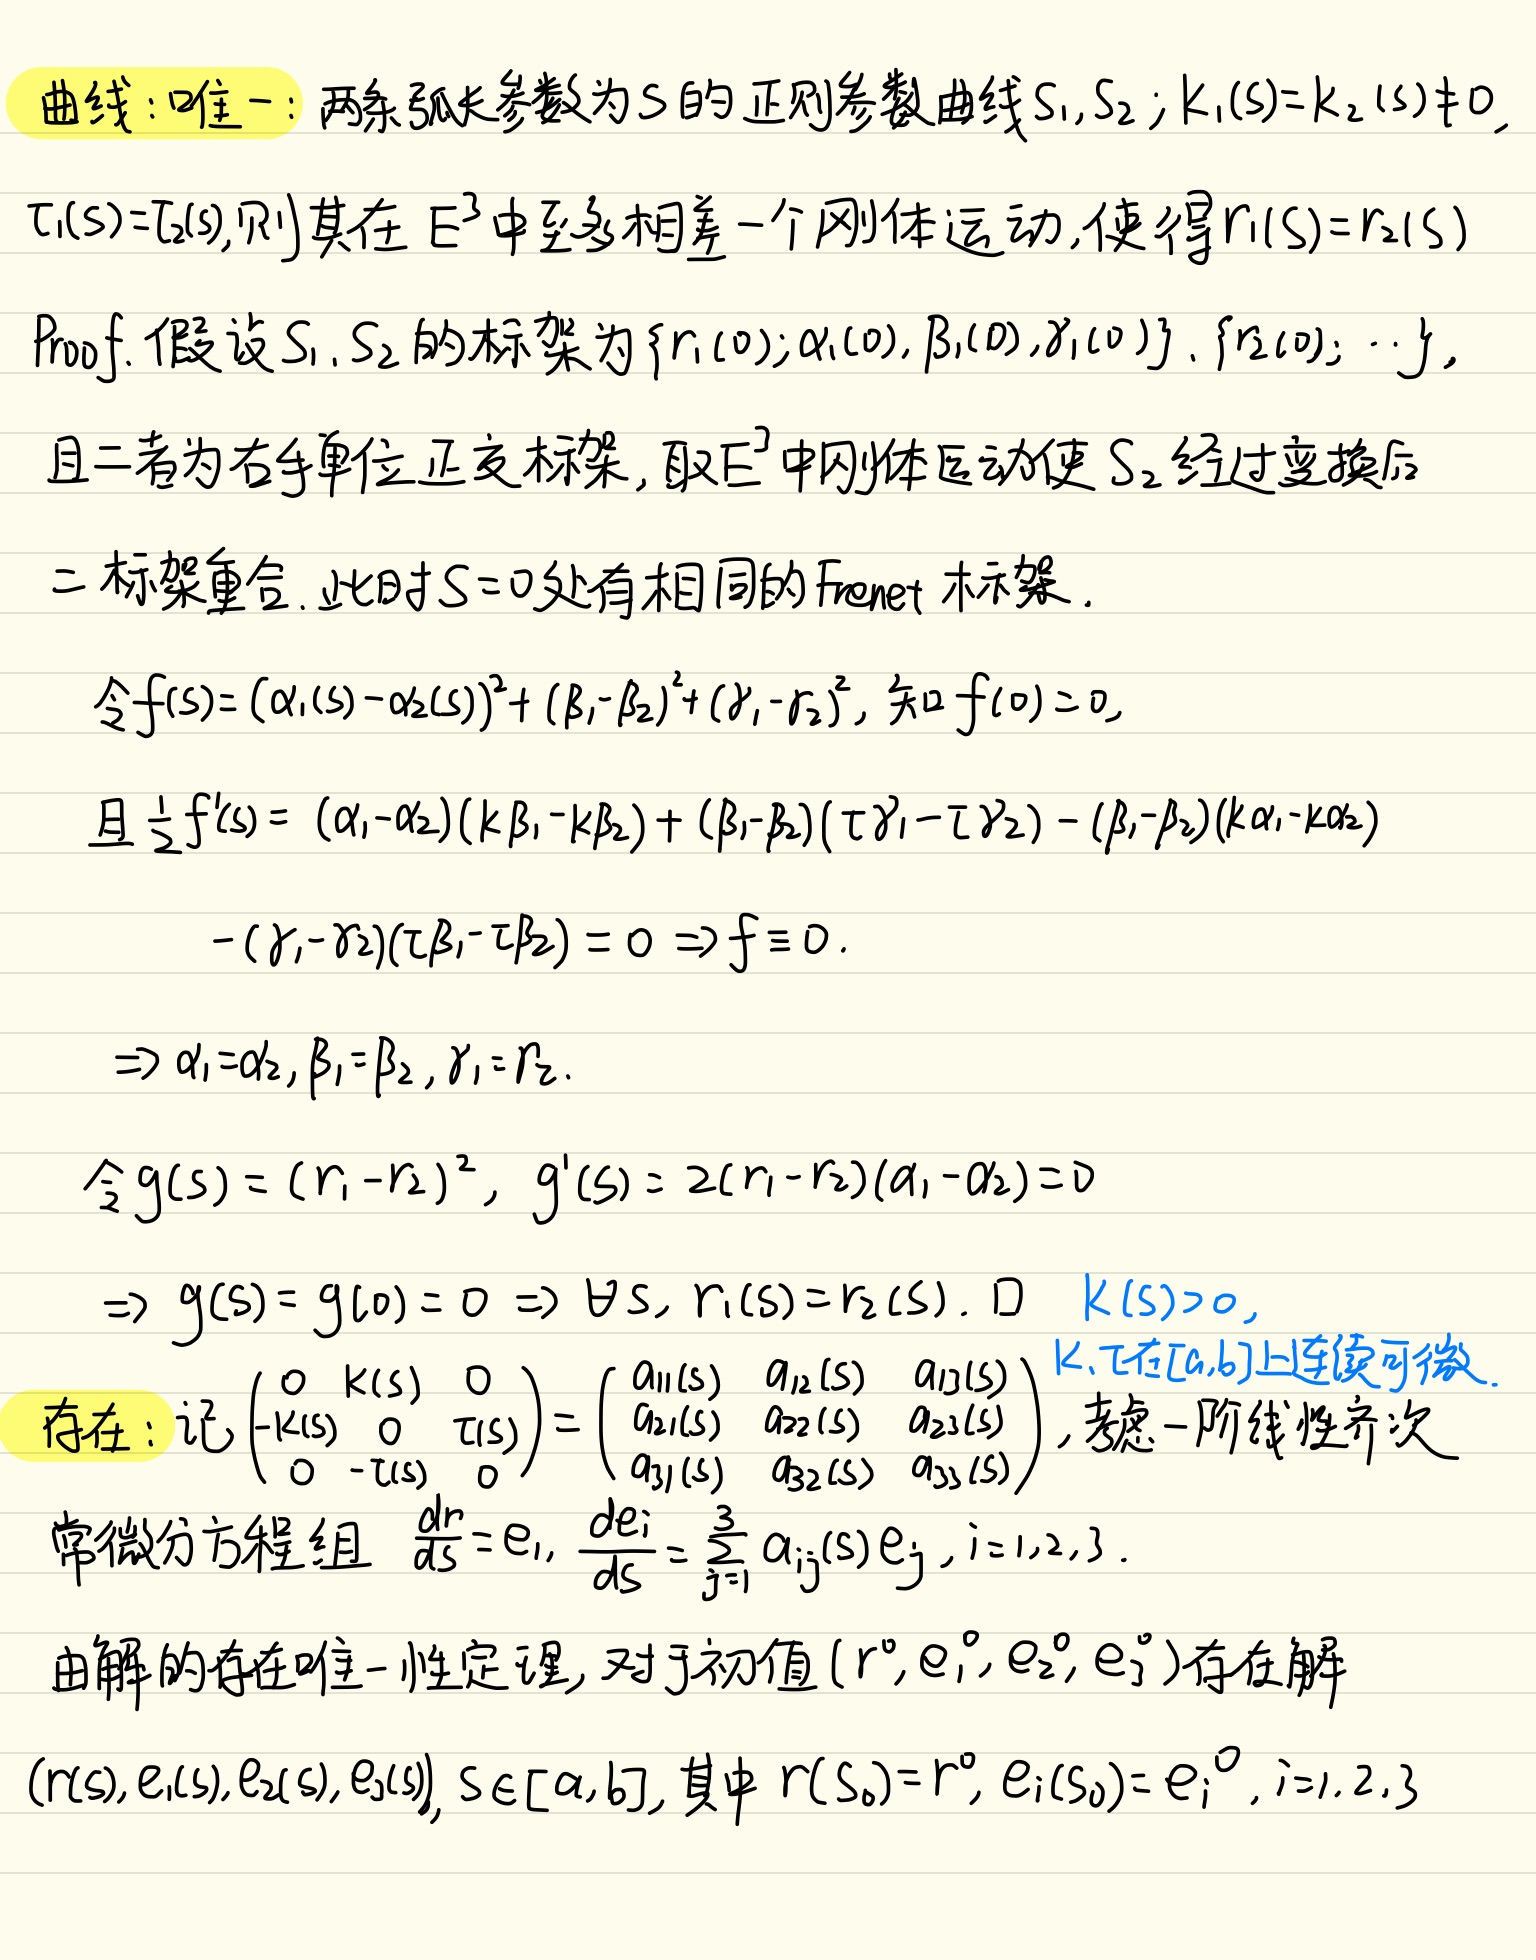 曲线：唯一：两条弧长参数为S的正则参数曲线S₁,S₂；k₁(s)=k₂(s)≠0,
τ₁(s)=τ₂(s),则其在E³中至多相差一个刚体运动,使得r₁(s)=r₂(s)
Proof. 假设S₁、S₂的标架为{r₁(0);α₁(0),β₁(0),γ₁(0)}、{r₂(0);…},
且二者为右手单位正交标架,取E³中刚体运动使S₂经过变换后
二标架重合.此时S=0处有相同的Frenet标架.
令f(s)=(α₁(s)-α₂(s))²+(β₁-β₂)²+(γ₁-γ₂)², 知f(0)=0,
且 1/2 f'(s)= (α₁-α₂)(kβ₁-kβ₂)+(β₁-β₂)(τγ₁-τγ₂)-(β₁-β₂)(kα₁-kα₂)
-(γ₁-γ₂)(τβ₁-τβ₂)=0 ⇒ f≡0.
⇒ α₁=α₂,β₁=β₂,γ₁=γ₂.
令g(s)=(r₁-r₂)², g'(s)=2(r₁-r₂)(α₁-α₂)=0
⇒ g(s)=g(0)=0 ⇒ ∀s, r₁(s)=r₂(s). □ K(s)>0,
K、τ在[a,b]上连续可微.
存在：记 (0 K(s) 0; -K(s) 0 τ(s); 0 -τ(s) 0) = (a₁₁(s) a₁₂(s) a₁₃(s); a₂₁(s) a₂₂(s) a₂₃(s); a₃₁(s) a₃₂(s) a₃₃(s)),考虑一阶线性齐次
常微分方程组 dr/ds=e₁, deᵢ/ds=∑_{j=1}^{3} aᵢⱼ(s)eⱼ, i=1,2,3.
由解的存在唯一性定理,对于初值(r⁰,e₁⁰,e₂⁰,e₃⁰)存在解
(r(s),e₁(s),e₂(s),e₃(s)),s∈[a,b],其中r(s₀)=r⁰,eᵢ(s₀)=eᵢ⁰,i=1.2.3